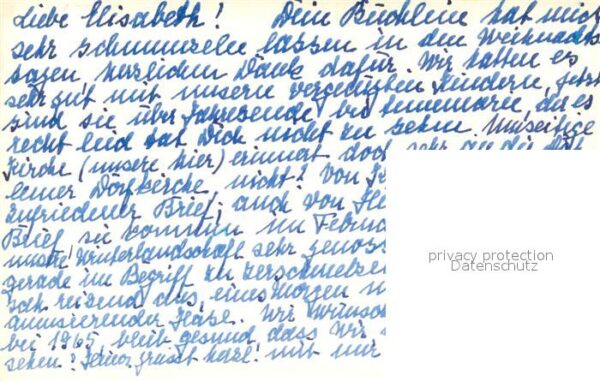 Liebe Elisabeth! Dein Büchlein hat mich
sehr schmunzeln lassen in den Weihnachts
tagen, herzlichen Dank dafür. Wir hatten es
sehr gut mit unseren vergnügten Kindern, jetzt
sind sie über Jahresende bis, der es
recht leid tat Dich nicht zu sehen. Umseitige
Kirche (unsere hier) erinnert doch sehr an die
Dorfkirche nicht? Von
zufriedener Brief; auch von
Brief, sie kommen im
unsere Winterlandschaft sehr
gerade im Begriff zu zerschmelzen
reizend das, eines Morgen
amüsierender Hase. Wir
bei 1965, bleib gesund, dass wir
sehen! Heinz grüsst herzl. mit mir
privacy protection
Datenschutz